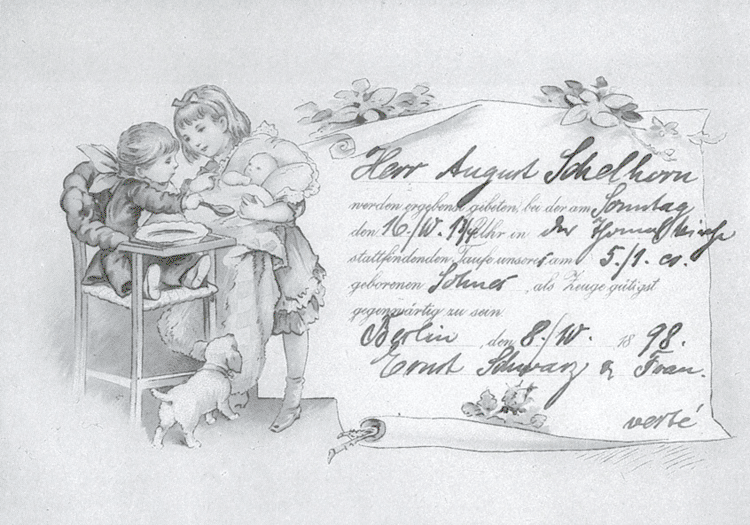 Herr August Schelhorn
werden ergebenst gebeten, bei der am Sonntag
den 16./IV. Uhr in der Thomas Kirche
stattfindenden Taufe unseres am 5./1. cr.
geborenen Sohnes, als Zeuge gütigst
gegenwärtig zu sein.
Berlin, den 8./IV. 1898.
Ernst Schwarz & Frau.
verté